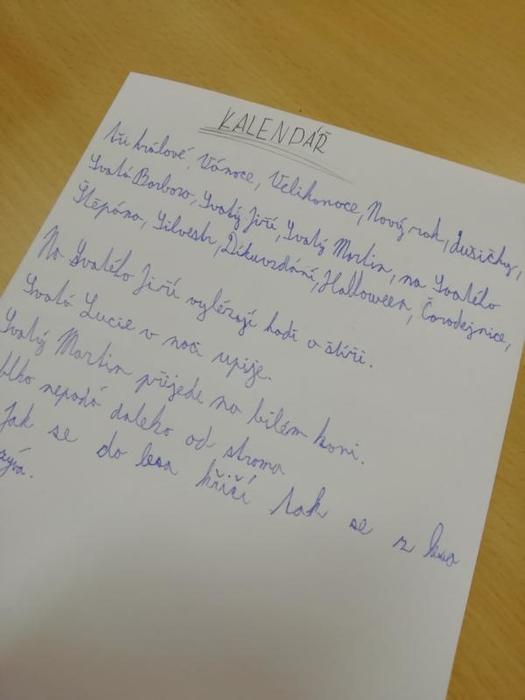 KALENDÁŘ
tři králové, Vánoce, Velikonoce, Nový rok, dušičky,
Svatá Barbora, Svatý Jiří, Svatý Martin, na Svatého
Štěpána, Silvestr, Díkuvzdání, Halloween, Čarodejnice,
Na Svatého Jiří vylézají hadi a štíři.
Svatá Lucie v noci upije.
Svatý Martin přijede na bílém koni.
blko nepadá daleko od stroma
Jak se do lesa křičí tak se z lesa
zývá.